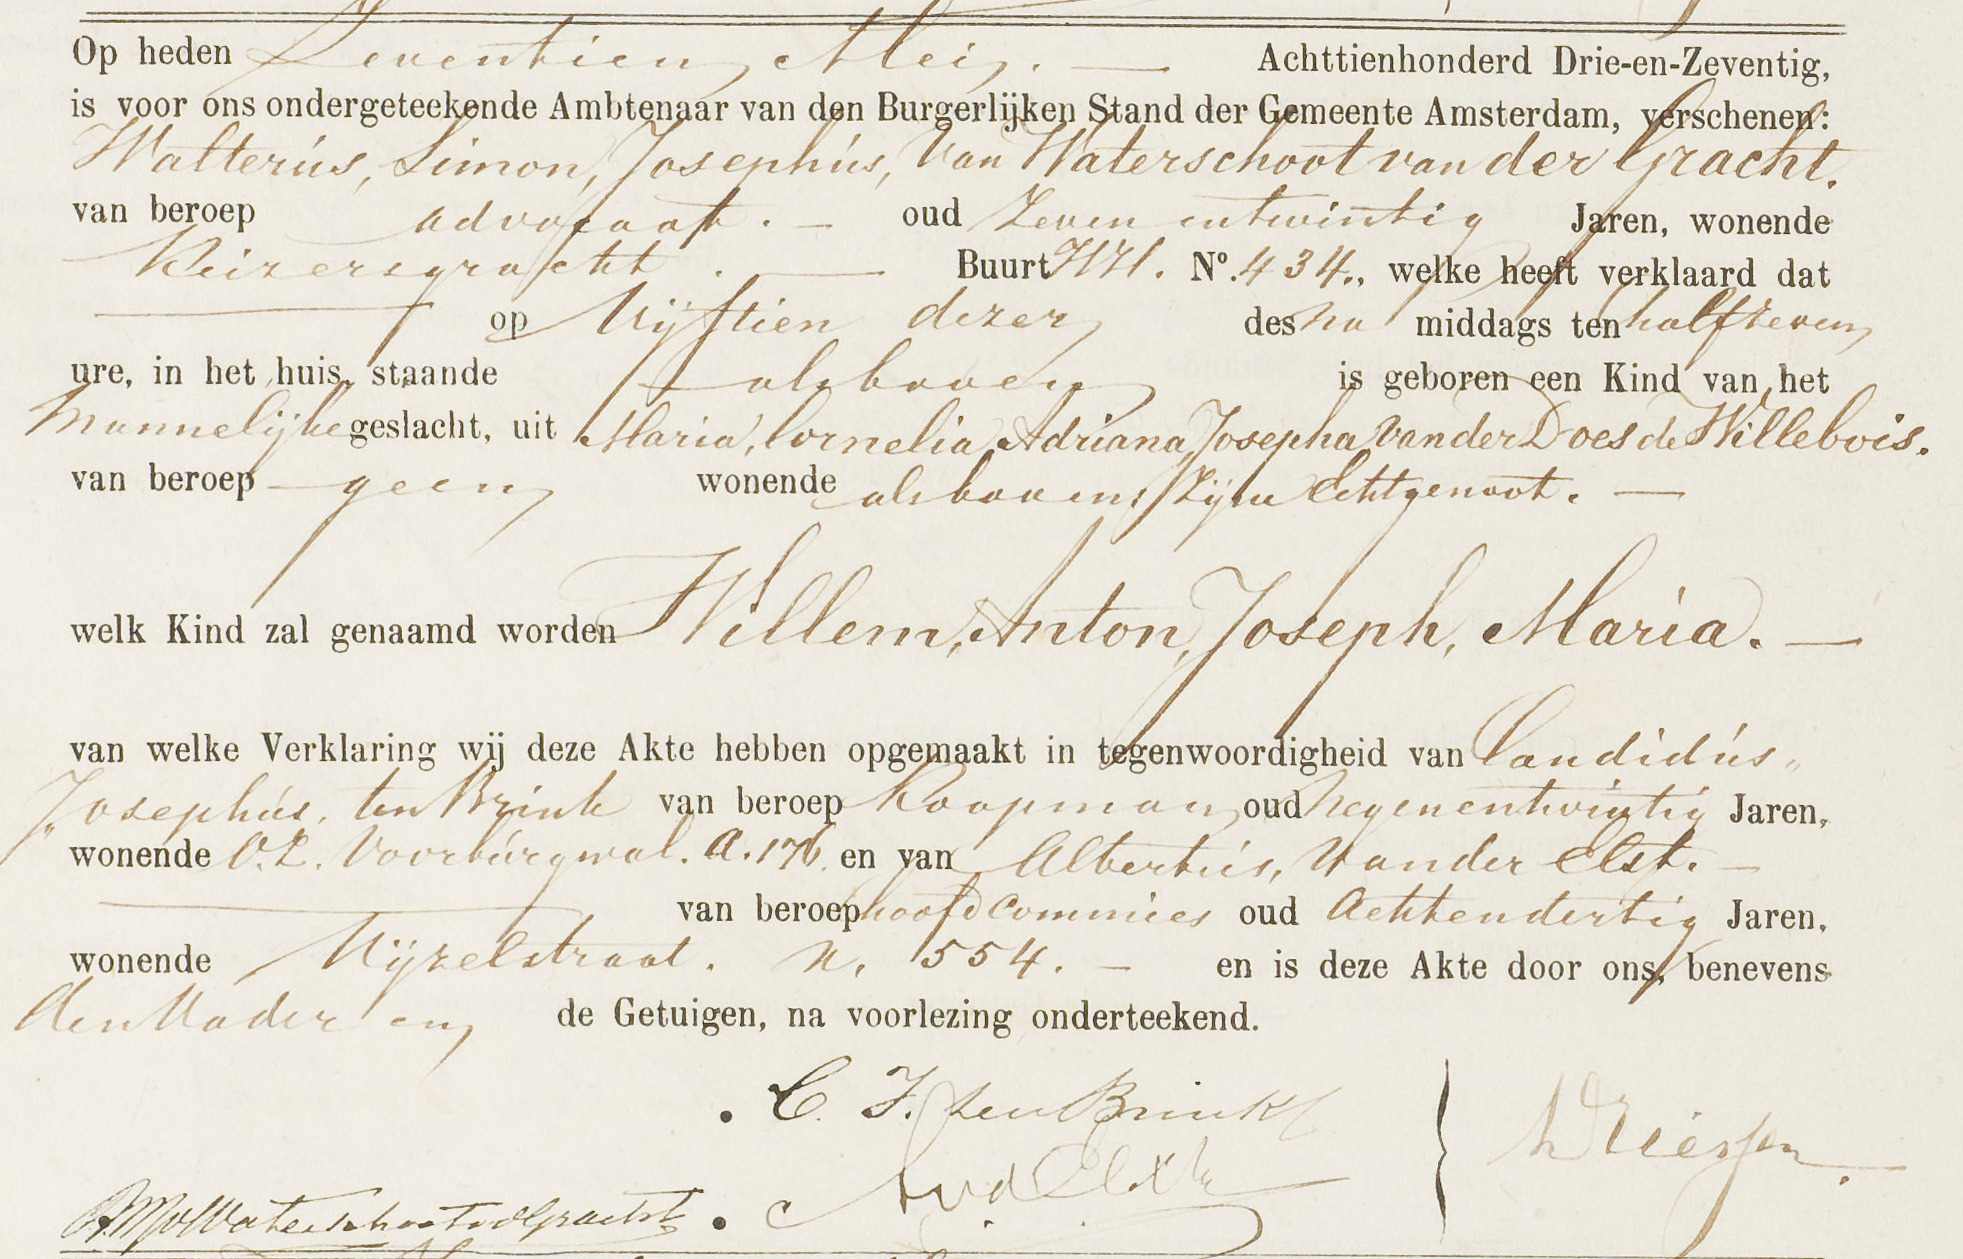 Op heden Zeventien Mei. — Achttienhonderd Drie-en-Zeventig,
is voor ons ondergeteekende Ambtenaar van den Burgerlijken Stand der Gemeente Amsterdam, verschenen:
Walterús, Simon, Josephús, Van Waterschoot van der Gracht.
van beroep advocaat. — oud Zeven entwintig Jaren, wonende
Keizersgracht. — Buurt No. 434., welke heeft verklaard dat
— op Vijftien dezer des na middags ten halfzeven
ure, in het huis, staande alsboven is geboren een Kind van het
Mannelijke geslacht, uit Maria, Cornelia, Adriana, Josepha Van der Does de Willebois.
van beroep — geen wonende alsboven, Zijne Echtgenoot. —
welk Kind zal genaamd worden Willem, Anton, Joseph, Maria. —
van welke Verklaring wij deze Akte hebben opgemaakt in tegenwoordigheid van Candidús„
„Josephús, ten Brink van beroep Koopman oud Negenentwintig Jaren,
wonende O.Z. Voorbúrgwal. A. 176. en van Albertús, Van der Elst. —
— van beroep hoofdcommies oud Achtendertig Jaren,
wonende Vijzelstraat. N. 554. — en is deze Akte door ons, benevens
den Vader en de Getuigen, na voorlezing onderteekend.
C. J. ten Brink
AvdElst
WvWaterschootvdGracht